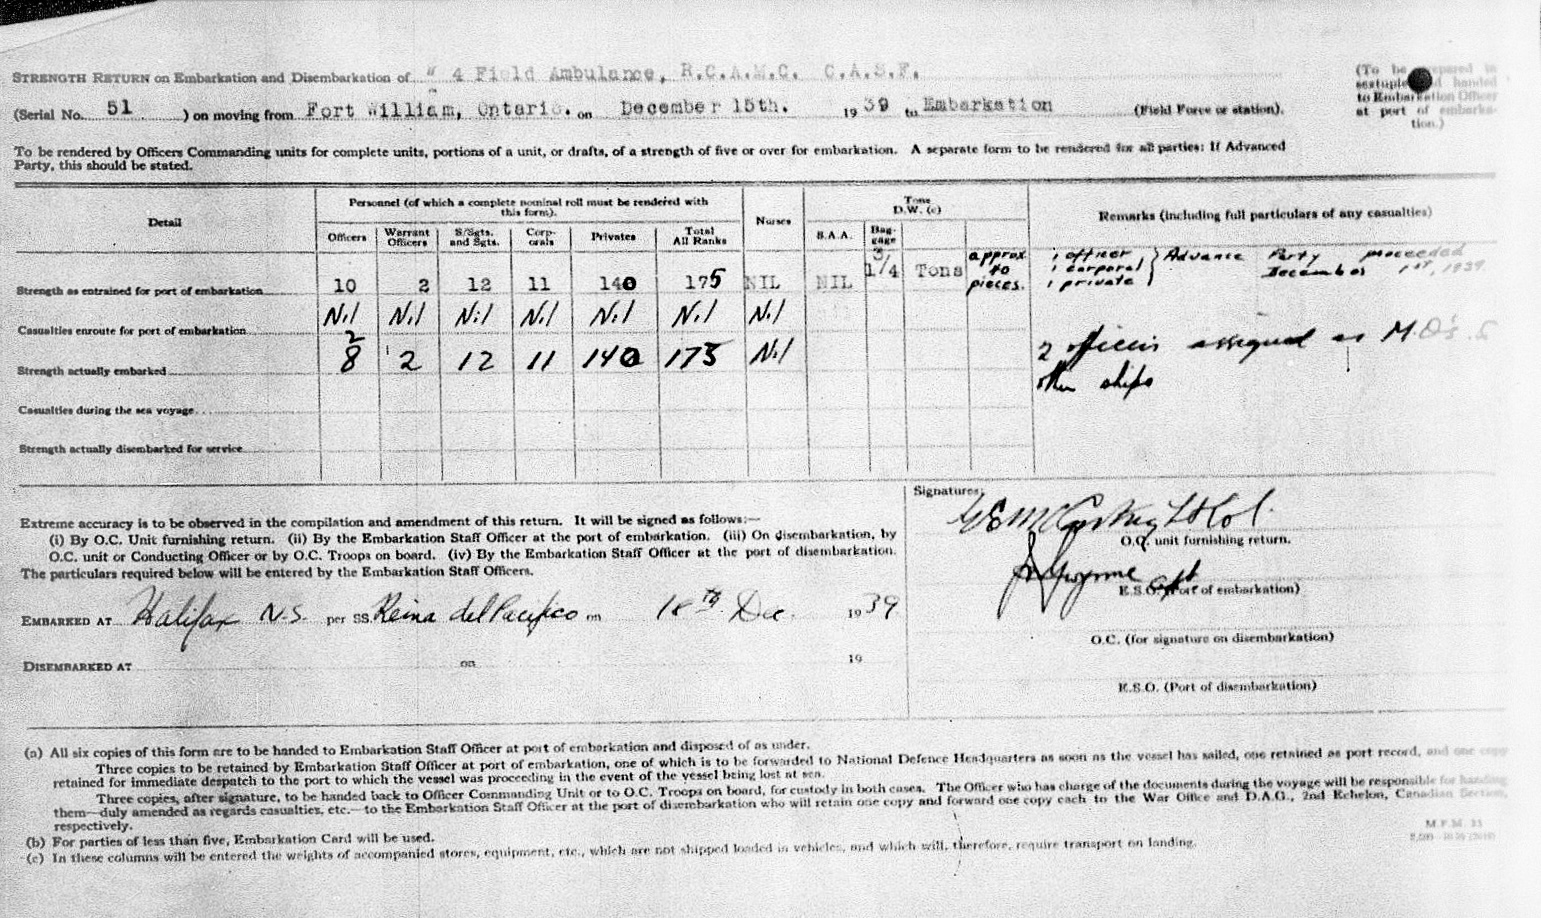 STRENGTH RETURN on Embarkation and Disembarkation of " 4 Field Ambulance, R.C.A.M.C. C.A.S.F.
(To be prepared in
sextuple handed
to Embarkation Officer
at port of embarka-
tion.)
(Serial No. 51 ) on moving from Fort William, Ontario. on December 15th. 1939 to Embarkation (Field Force or station).
To be rendered by Officers Commanding units for complete units, portions of a unit, or drafts, of a strength of five or over for embarkation. A separate form to be rendered for all parties: If Advanced
Party, this should be stated.
Detail
Personnel (of which a complete nominal roll must be rendered with
this form).
Nurses
Tons
D.W. (c)
Remarks (including full particulars of any casualties)
Officers Warrant Officers S/Sgts. and Sgts. Corp-orals Privates Total All Ranks S.A.A. Bag-gage
Strength as entrained for port of embarkation 10 2 12 11 140 175 NIL NIL 3 1/4 Tons approx to pieces.
1 officer
1 corporal
1 private } Advance Party proceeded
December 1st, 1939.
Casualties enroute for port of embarkation Nil Nil Nil Nil Nil Nil Nil
2
Strength actually embarked 8 2 12 11 140 173 Nil
2 officers assigned as M.O's.
other ships
Casualties during the sea voyage
Strength actually disembarked for service
Signatures:
Extreme accuracy is to be observed in the compilation and amendment of this return. It will be signed as follows:—
(i) By O.C. Unit furnishing return. (ii) By the Embarkation Staff Officer at the port of embarkation. (iii) On disembarkation, by
O.C. unit or Conducting Officer or by O.C. Troops on board. (iv) By the Embarkation Staff Officer at the port of disembarkation.
The particulars required below will be entered by the Embarkation Staff Officers.
Lt Col.
O.C. unit furnishing return.
Gwynne Capt
E.S.O. (Port of embarkation)
EMBARKED AT Halifax N.S. per SS. Reina del Pacifico on 18th Dec. 1939
O.C. (for signature on disembarkation)
DISEMBARKED AT on 19
E.S.O. (Port of disembarkation)
(a) All six copies of this form are to be handed to Embarkation Staff Officer at port of embarkation and disposed of as under.
Three copies to be retained by Embarkation Staff Officer at port of embarkation, one of which is to be forwarded to National Defence Headquarters as soon as the vessel has sailed, one retained as port record, and one copy
retained for immediate despatch to the port to which the vessel was proceeding in the event of the vessel being lost at sea.
Three copies, after signature, to be handed back to Officer Commanding Unit or to O.C. Troops on board, for custody in both cases. The Officer who has charge of the documents during the voyage will be responsible for handing
them—duly amended as regards casualties, etc.—to the Embarkation Staff Officer at the port of disembarkation who will retain one copy and forward one copy each to the War Office and D.A.G., 2nd Echelon, Canadian Section,
respectively.
(b) For parties of less than five, Embarkation Card will be used.
(c) In these columns will be entered the weights of accompanied stores, equipment, etc., which are not shipped loaded in vehicles, and which will, therefore, require transport on landing.
M.F.M. 31